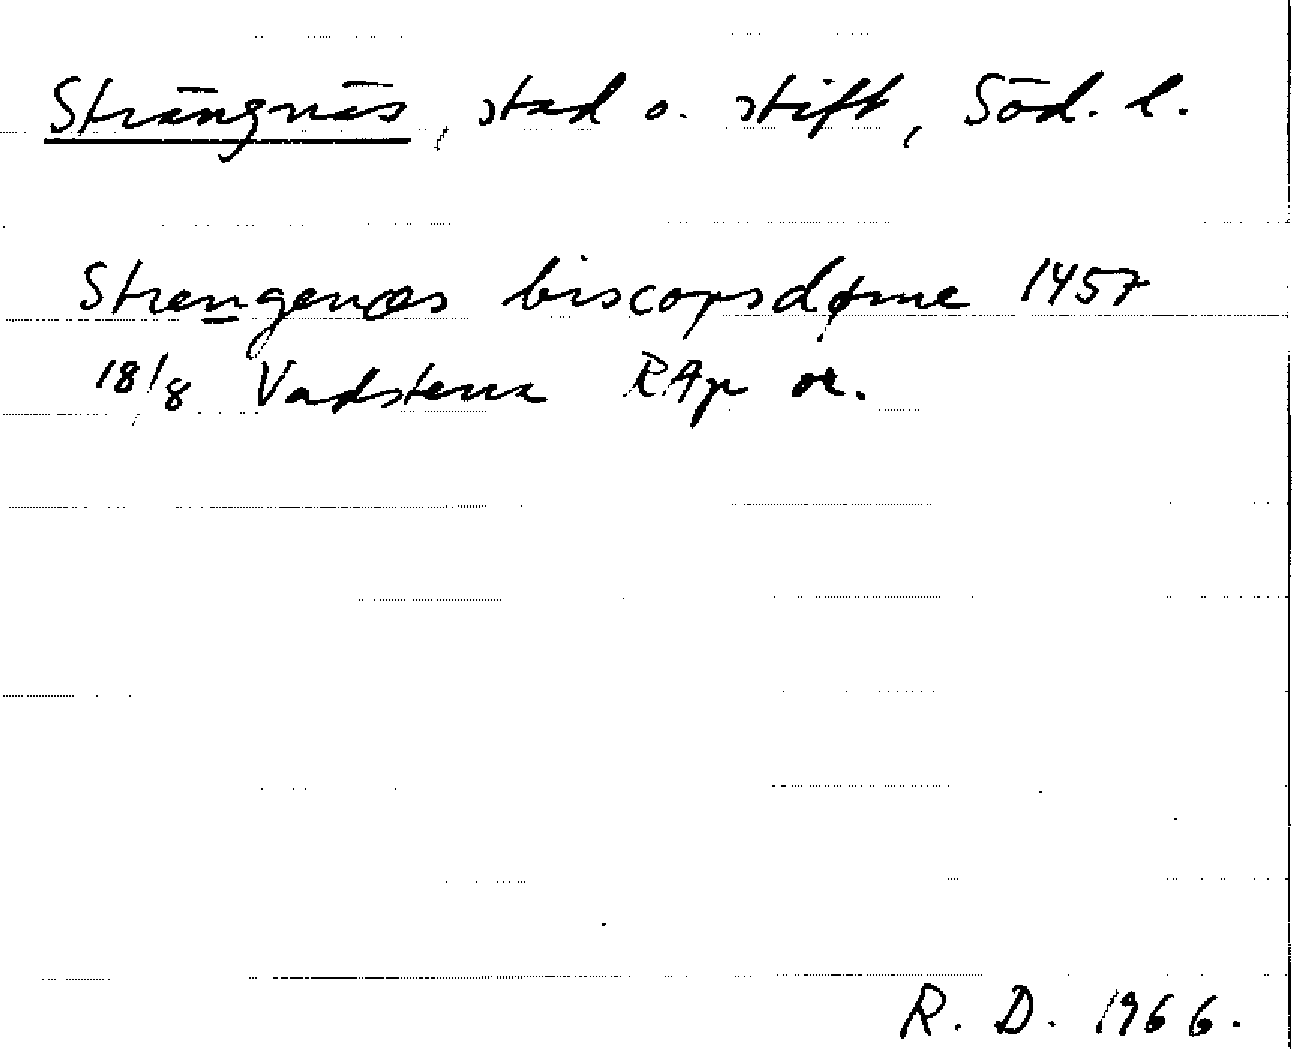 Strängnäs, stad o. stift, Söd. l.
Strengenæs biscopsdøme 1457
18/8 Vadstena RAp or.
R. D. 1966.